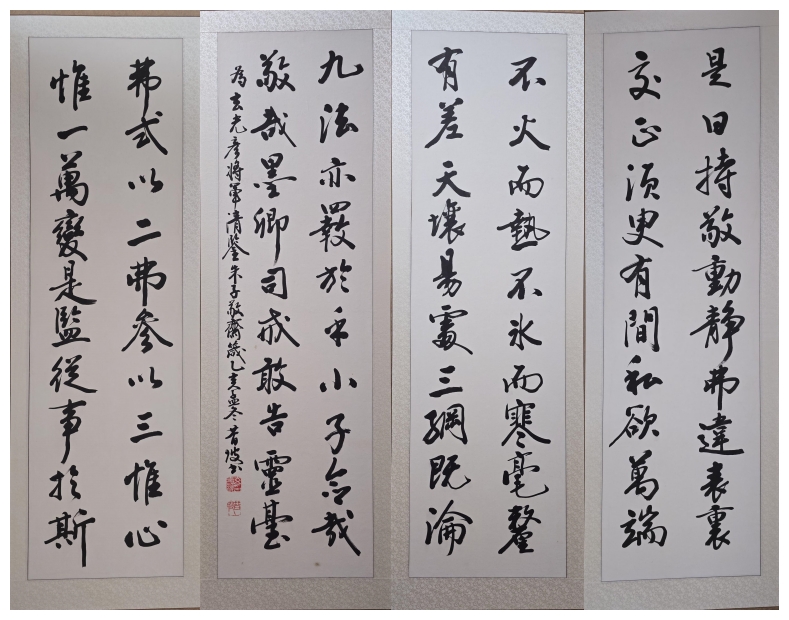 弗弍以二弗參以三惟心
惟一萬變是監從事於斯
是曰持敬動靜弗違表裏
交正須臾有間私欲萬端
不火而熱不氷而寒毫釐
有差天壤易處三綱既淪
九法亦斁於乎小子念哉
敬哉墨卿司戒敢告靈臺
為玄光彥將軍清鑒朱子敬齋箴乙亥孟冬